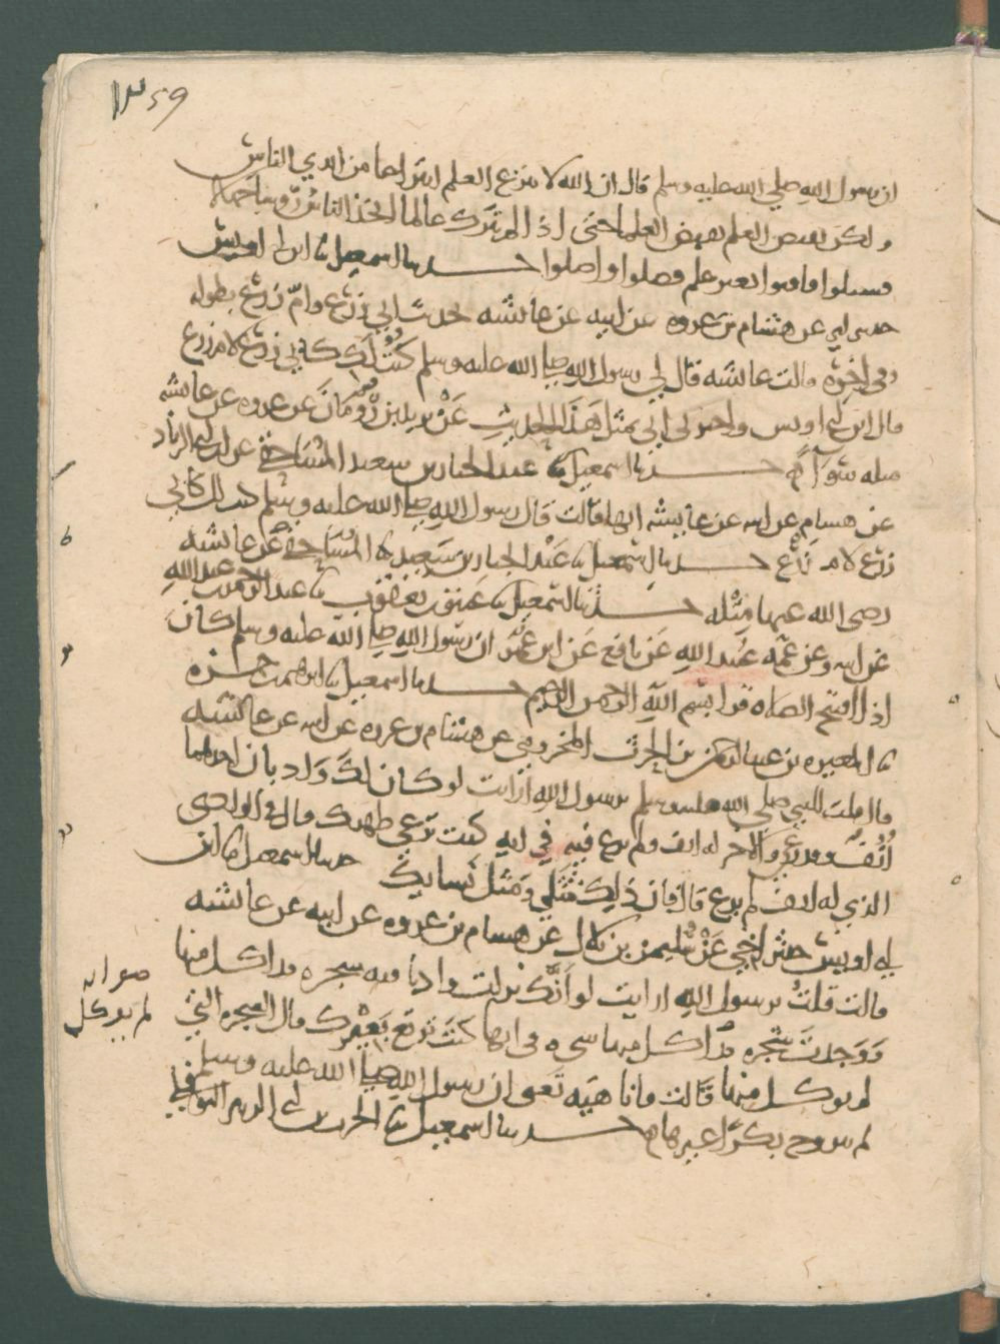 ١٣٥٩
ان رسول الله صلي الله عليه وسلم قال ان الله لا ينزع العلم انتزاعا من ايدي الناس
ولكن يقبض العلم بقبض العلما حتى اذا لم يترك عالما اتخذ الناس رؤسا جهالا
فسيلوا فافتوا بغير علم فضلوا واضلوا حدثنا اسمعيل ثنا ابن ابي اويس
حدثني ابي عن هشام بن عروه عن ابيه عن عائشه حديث ابي زرع وام زرع بطوله
وفي اخره قالت عائشه قال لي رسول الله صلي الله عليه وسلم كنت لك كابي زرع لام زرع
قال ابن ابي اويس واخبرني ابي بمثل هذا الحديث عن يزيد بن رومان عن عروه عن عائشه
مثله سوآ حدثنا اسمعيل ثنا عبد الجبار بن سعيد المساحقي عن ابن ابي الزناد
عن هسام عن ابيه عن عائيشه انها قالت قال رسول الله صلي الله عليه وسلم كنت لك كابي
زرع لام زرع حدثنا اسمعيل ثنا عبد الجبار بن سعيد ثنا المساحقي عن عائشه
رضى الله عنها مثله حدثنا اسمعيل ثنا عتيق بن يعقوب ثنا عبد الرحمن بن عبد الله
عن ابيه وعن عمه عبيد الله عن نافع عن ابن عمر ان رسول الله صلي الله عليه وسلم كان
اذا افتتح الصلاه قرا بسم الله الرحمن الرحيم حدثنا اسمعيل ثنا ابرهيم بن حمزه
ثنا المغيره بن عبد الرحمن بن الحرث المخزومي عن هشام بن عروه عن ابيه عن عائشه
قالت قلت للنبي صلي الله عليه وسلم يرسول الله ارايت لو كان لك واديان احدهما
أنف وقد رعي والآخر له انف ولم يرع فيه في ايه كنت ترعي ظهرك قال في الوادي
الذي له انف لم يرع قال فان ذلك مثلي ومثل نسايك حدثنا اسمعيل ثنا ابن
ابي اويس حدثني اخي عن سليمن بن بلال عن هسام بن عروه عن ابيه عن عائشه
قالت قلت يرسول الله ارايت لو انك نزلت واديا فيه سجره قد اكل منها
ووجدت شجره لم يوكل منها سيء في ايها كنت ترتع بعيرك قال الشجره التي
لم يوكل منها قالت فانا هيه تعني ان رسول الله صلي الله عليه وسلم
لم يتزوج بكرا غيرها حدثنا اسمعيل ثنا الحرث بن ابي الزبير النوفلي
صوابه
لم يوكل